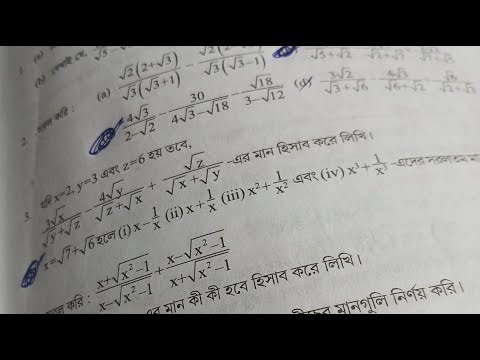 1. (a)
(b) দেখাই যে,
2. সরল করি : (a) √2(2+√3)/√3(√3+1) − √2(2−√3)/√3(√3−1)
4√3/2−√2 − 30/4√3−√18 − √18/3−√12 (d) 3√2/√3+√6 − 4√3/√6+√2 + √6/√2+√3
3. যদি x=2, y=3 এবং z=6 হয় তবে,
3√x/√y+√z − 4√y/√z+√x + √z/√x+√y -এর মান হিসাব করে লিখি।
x=√7+√6 হলে (i) x−1/x (ii) x+1/x (iii) x²+1/x² এবং (iv) x³+1/x³
করি : x+√x²−1/x−√x²−1 + x−√x²−1/x+√x²−1
মান কী কী হবে হিসাব করে লিখি।
মানগুলি নির্ণয় করি।